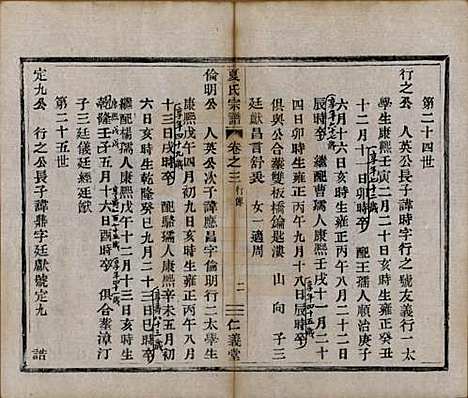 第二十四世
行之公　人英公長子諱時字行之號友義行一太
學生康熙壬寅二月二日亥時生雍正癸丑
十二月十一日未時卒　配王孺人順治庚子
六月十六日亥時生雍正丙午八月二十二日
辰時卒　繼配曹孺人康熙壬戌十一月二十
四日卯時生雍正丙午九月十八日辰時卒
俱與公合𦵏雙板橋鑰匙漊　山　向　子三
廷獻昌言舒奕　女一適周
夏氏宗譜　卷之三　行傳　二　仁義堂
倫明公　人英公次子諱應昌字倫明行二太學生
康熙戊午四月初九日亥時生雍正己酉三月
十三日亥時卒　配龡孺人康熙辛未五月初
六日亥時生乾隆癸巳九月二十日亥時卒
繼配楊孺人康熙　十二月十三日亥時生
乾隆壬子五月十六日酉時卒　俱合𦵏漳汀
子三廷儀廷經廷猷
第二十五世
定九公　行之公長子諱鼎字廷獻號定九　誥